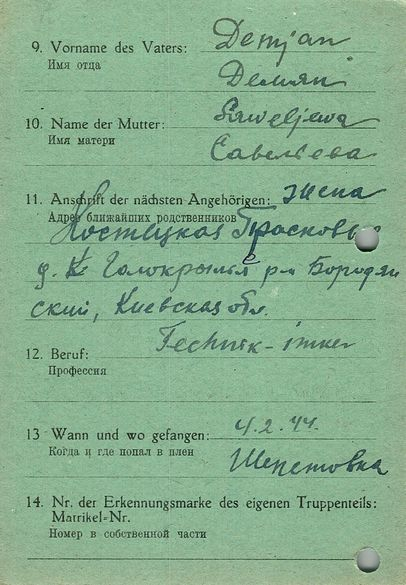 9. Vorname des Vaters: Demjan
Имя отца Демян
10. Name der Mutter: Saweljewa
Имя матери Савельева
11. Anschrift der nächsten Angehörigen: жена
Адрес ближайших родственников
Костецкая Прасковья
д. Голокрылье р-н Бородян
ский, Киевская обл.
12. Beruf: Technik-imker
Профессия
13 Wann und wo gefangen: 4.2.44.
Когда и где попал в плен Шепетовка
14. Nr. der Erkennungsmarke des eigenen Truppenteils:
Matrikel-Nr.
Номер в собственной части